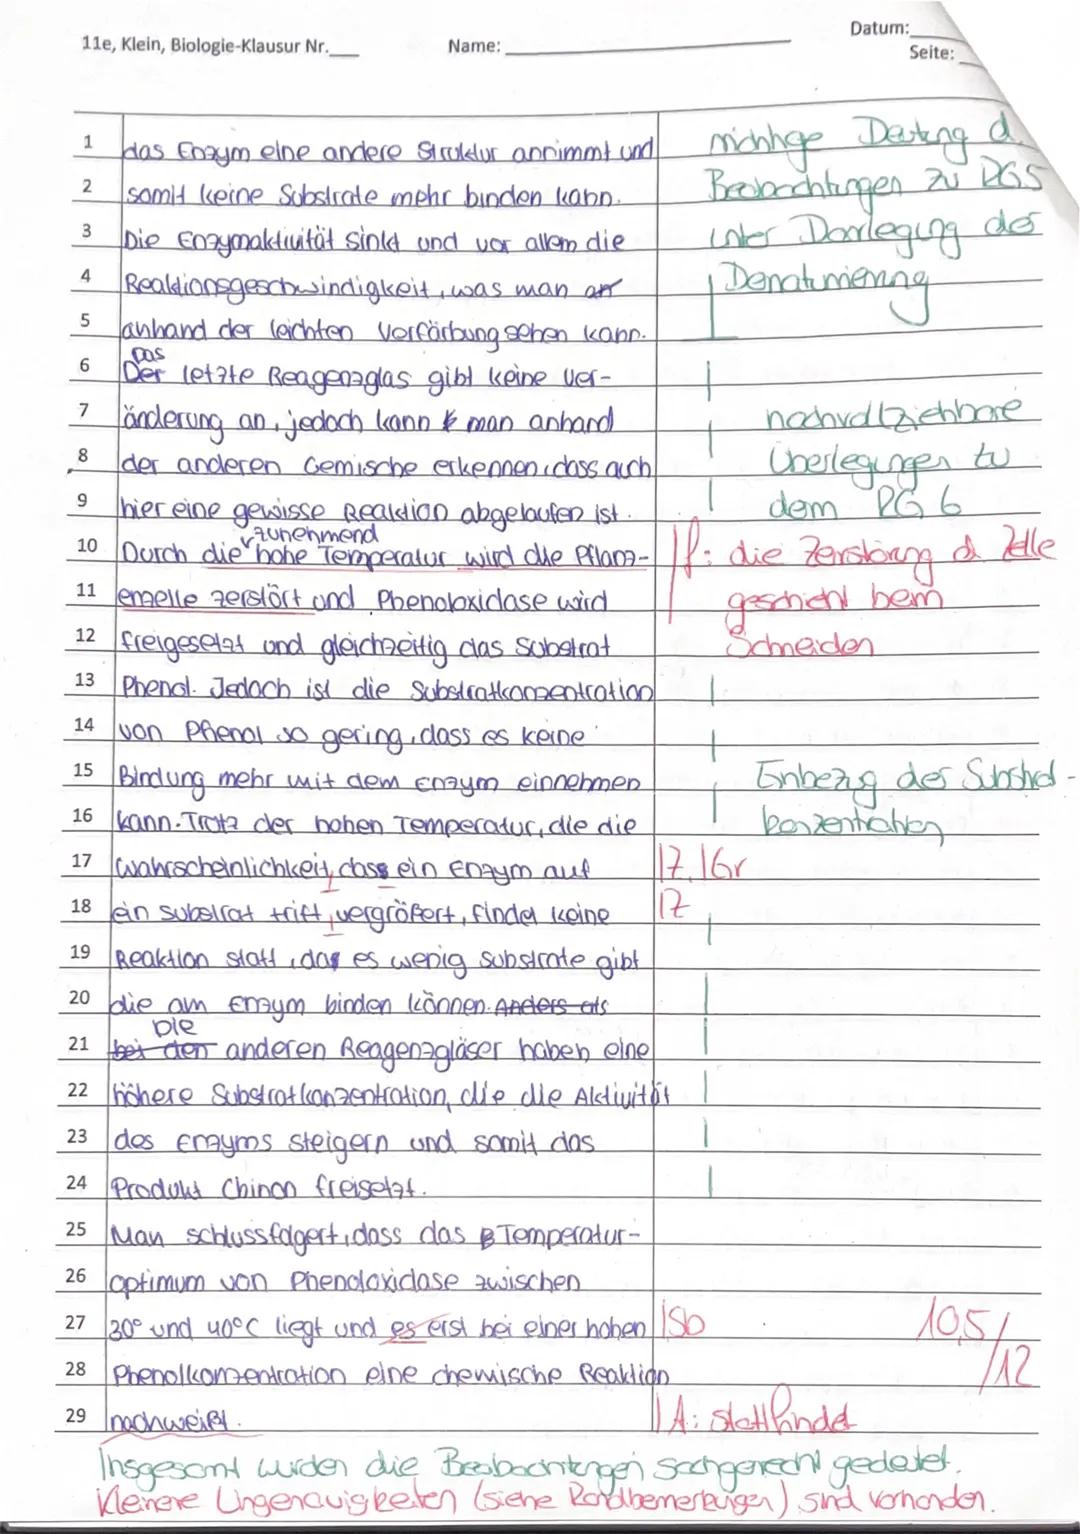 11e, Klein, Biologie-Klausur Nr.___ Name: ___ Datum:___
Seite: ___
1 das Enzym eine andere Struktur annimmt und richtige Deutung d.
2 somit keine Substrate mehr binden kann. Beobachtungen zu RG5
3 Die Enzymaktivität sinkt und vor allem die unter Darlegung der
4 Reaktionsgeschwindigkeit, was man an Denaturierung
5 anhand der leichten Verfärbung sehen kann.
Das
6 Der letzte Reagenzglas gibt keine Ver-
7 änderung an, jedoch kann man anhand nachvollziehbare
8 der anderen Gemische erkennen, dass auch Überlegungen zu
9 hier eine gewisse Reaktion abgelaufen ist. dem RG 6
zunehmend
10 Durch die hohe Temperatur wird die Pflanz- f: die Zerstörung d. Zelle
11 enzelle zerstört und Phenoloxidase wird geschieht beim
12 freigesetzt und gleichzeitig das Substrat Schneiden
13 Phenol. Jedoch ist die Substratkonzentration
14 von Phenol so gering, dass es keine
15 Bindung mehr mit dem Enzym einnehmen Einbezug der Substrat-
16 kann. Trotz der hohen Temperatur, die die konzentration
17 Wahrscheinlichkeit, dass ein Enzym auf |Z, |Gr
18 ein Substrat trift, vergrößert, findet keine |Z
19 Reaktion statt, da es wenig Substrate gibt
20 die am Enzym binden können. Anders als
Die
21 bei den anderen Reagenzgläser haben eine
22 höhere Substratkonzentration, die die Aktivität
23 des Enzyms steigern und somit das
24 Produkt Chinon freisetzt.
25 Man schlussfolgert, dass das Temperatur-
26 optimum von Phenoloxidase zwischen
27 30° und 40°C liegt und es erst bei einer hohen |Sb 10,5/
28 Phenolkonzentration eine chemische Reaktion /12
29 nachweißt. | A: stattfindet
Insgesamt wurden die Beobachtungen sachgerecht gedeutet.
Kleinere Ungenauigkeiten (siehe Randbemerkungen) sind vorhanden.